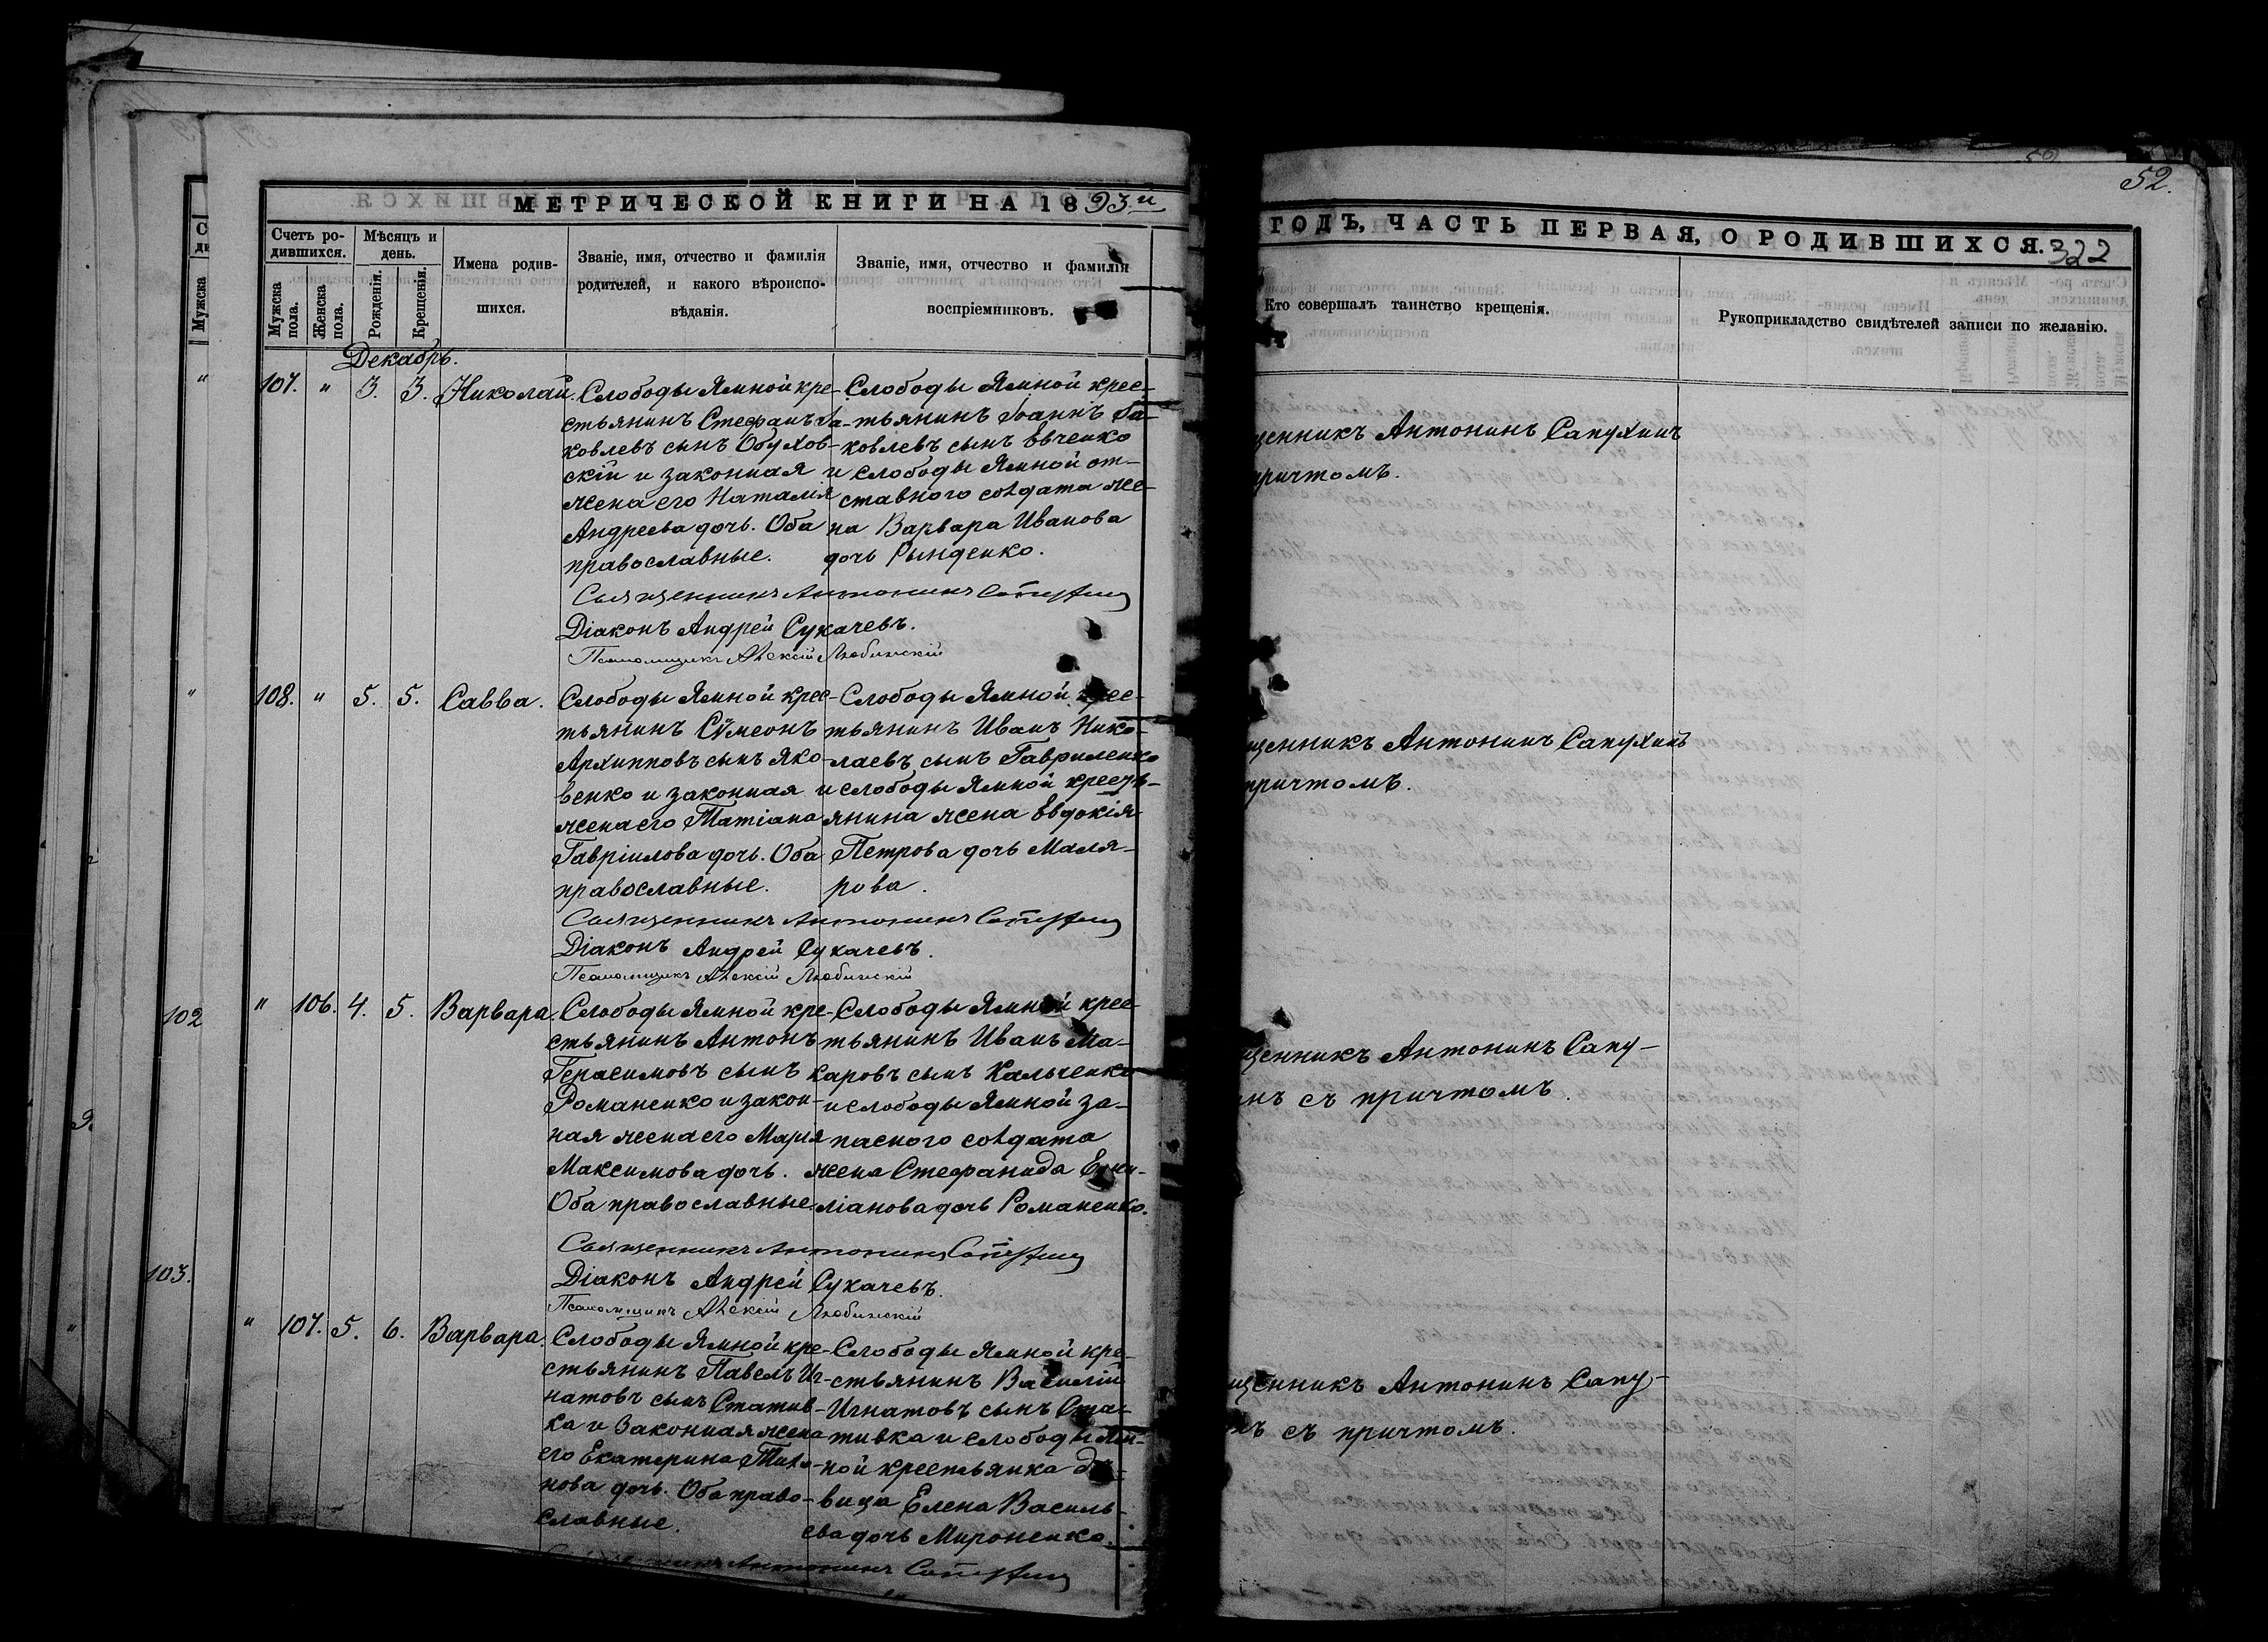 52.
МЕТРИЧЕСКОЙ КНИГИ НА 1893й
ГОДЪ, ЧАСТЬ ПЕРВАЯ, О РОДИВШИХСЯ.
322
Счетъ ро-
дившихся.
Мужска
пола.
Женска
пола.
Мѣсяцъ и
день.
Рожденія.
Крещенія.
Имена родив-
шихся.
Званіе, имя, отчество и фамилія
родителей, и какого вѣроиспо-
вѣданія.
Званіе, имя, отчество и фамилія
воспріемниковъ.
Кто совершалъ таинство крещенія.
Рукоприкладство свидѣтелей записи по желанію.
Декабрь.
107. " 3. 3. Николай.
Слободы Ямной кре-
стьянинъ Стефанъ Іа-
ковлевъ сынъ Обухов-
скій и законная
жена его Наталія
Андреева дочь. Оба
православные.
Слободы Ямной крес-
тьянинъ Іоаннъ Іа-
ковлевъ сынъ Евченко
и слободы Ямной от-
ставного солдата же-
на Варвара Иванова
дочь Рынденко.
щенникъ Антонинъ Сапухинъ
причтомъ.
Священникъ Антонинъ Сапухин
Діаконъ Андрей Сукачевъ.
Псаломщикъ Алексій Любинскій
108. " 5. 5. Савва.
Слободы Ямной крес-
тьянинъ Сѵмеонъ
Архипповъ сынъ Яко-
венко и законная
жена его Татіана
Гавріилова дочь. Оба
православные.
Слободы Ямной крес-
тьянинъ Иванъ Нико-
лаевъ сынъ Гавриленко
и слободы Ямной кресть-
янина жена Евдокія
Петрова дочь Маля-
рова.
щенникъ Антонинъ Сапухинъ
причтомъ.
Священникъ Антонинъ Сапухин
Діаконъ Андрей Сукачевъ.
Псаломщикъ Алексій Любинскій
102
" 106. 4. 5. Варвара.
Слободы Ямной кре-
стьянинъ Антонъ
Герасимовъ сынъ
Романенко и закон-
ная жена его Марія
Максимова дочь.
Оба православные.
Слободы Ямной крес-
тьянинъ Иванъ Ма-
каровъ сынъ Кальченко
и слободы Ямной за-
паснаго солдата
жена Стефанида Еми-
ліанова дочь Романенко.
щенникъ Антонинъ Сапу-
инъ съ причтомъ.
Священникъ Антонинъ Сапухин
Діаконъ Андрей Сукачевъ.
Псаломщикъ Алексій Любинскій
103.
" 107. 5. 6. Варвара.
Слободы Ямной кре-
стьянинъ Павелъ Иг-
натовъ сынъ Статив-
ка и законная жена
его Екатерина Тихо-
нова дочь. Оба право-
славные.
Слободы Ямной кре-
стьянинъ Василій
Игнатовъ сынъ Ста-
тивка и слободы Ям-
ной крестьянка дѣ-
вица Елена Василь-
ева дочь Мироненко.
щенникъ Антонинъ Сапу-
нъ съ причтомъ.
Антонинъ Сапухин